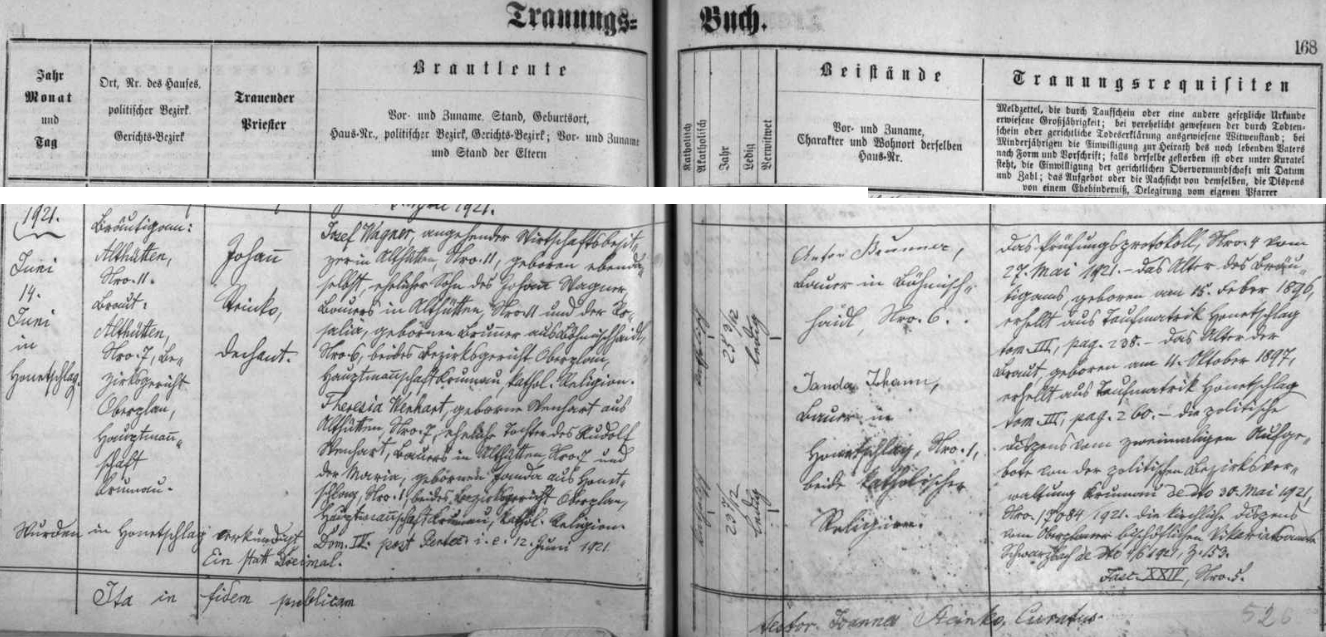 Trauungs-
Buch.
168
Jahr
Monat
und
Tag
Ort, Nr. des Hauses,
politischer Bezirk
Gerichts-Bezirk
Trauender
Priester
Brautleute
Vor- und Zuname, Stand, Geburtsort,
Haus-Nr., politischer Bezirk, Gerichts-Bezirk; Vor- und Zuname
und Stand der Eltern
Katholisch
Akatholisch
Jahr
Ledig
Verwitwet
Beistände
Vor- und Zuname,
Charakter und Wohnort derselben
Haus-Nr.
Trauungsrequisiten
Meldzettel, die durch Taufschein oder eine andere gesetzliche Urkunde
erwiesene Großjährigkeit; bei verehelicht gewesenen der durch Todten-
schein oder gerichtliche Todeserklärung ausgewiesene Witwenstand; bei
Minderjährigen die Einwilligung zur Heirath des noch lebenden Vaters
nach Form und Vorschrift; falls derselbe gestorben ist oder unter Kuratel
steht, die Einwilligung der gerichtlichen Obervormundschaft mit Datum
und Zahl; das Aufgebot oder die Nachsicht von demselben, die Dispens
von einem Ehehinderniß, Delegirung vom eigenen Pfarrer
1921.
Juni
14.
Juni
in
Honetschlag.
Bräutigam:
Althütten,
Nro. 11.
Braut:
Althütten,
Nro. 7, Be-
zirksgericht
Oberplan,
Hauptman̄-
schaft
Krumau.
Johan̄
Steinko,
Dechant.
1921.
Josef Wagner, angehender Wirtschaftsbesit-
zer in Althütten Nro. 11, geboren ebenda-
selbst, ehelicher Sohn des Johann Wagner,
Bauers in Althütten, Nro. 11 und der Ro-
salia, gebornen Brunner aus Böhmischhaidl,
Nro. 6, beides Bezirksgericht Oberplan,
Hauptmanschaft Krumau, kathol. Religion.
Theresia Wenhart, geborne Wenhart aus
Althütten Nro. 7, eheliche Tochter des Rudolf
Wenhart, Bauers in Althütten, Nro. 7 und
der Maria, gebornen Janda aus Honet-
schlag, Nro. 1, beides Bezirksgericht Oberplan,
Hauptmanschaft Krumau, kathol. Religion.
Wurden in Honetschlag verkündigt Dom. IV. post Pentec. i. e. 12. Juni 1921.
Ein statt Dreimal.
Ita in fidem publicam
katholisch
25 3/12
ledig
katholisch
23 8/12
ledig
Anton Brunner,
Bauer in Böhmisch-
haidl, Nro. 6.
Janda Johann,
Bauer in
Honetschlag, Nro. 1,
beide katholischer
Religion.
Das Prüfungsprotokoll, Nro. 4 vom
27. Mai 1921. – Das Alter des Bräu-
tigams, geboren am 15. Feber 1896,
erhellt aus Taufmatrik Honetschlag
tom. III, pag. 238. – Das Alter der
Braut geboren am 11. Oktober 1897,
erhellt aus Taufmatrik Honetschlag
tom. III, pag. 260. – Die politische
Dispens vom zweimaligen Aufge-
bote von der politischen Bezirksver-
waltung Krumau de dto 30. Mai 1921,
Nro. 17084 1921. die kirchliche Dispens
vom Oberplaner bischöflichen Vikariatsamte
Schwarzbach de dto 1/6 1921, Z. 153.
Fasc. XXIV, Nro. 5.
Joannes Steinko, Curatus.
526